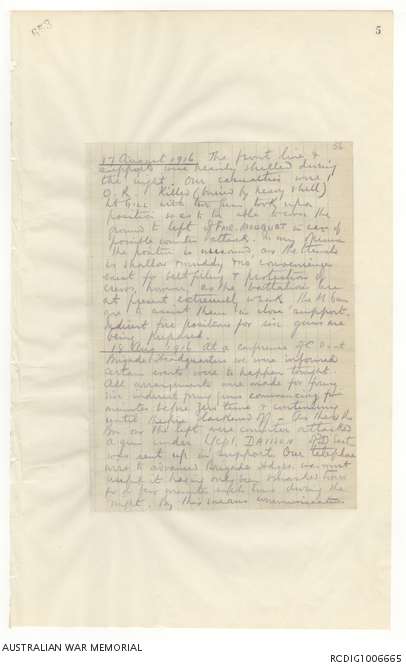 5
56
17 August 1916. The front line &
supports were heavily shelled during
the night. Our casualties were
O.R. 1 Killed (buried by heavy shell)
Lt Gill with two guns took up a
position so as to be able to cover the
ground to left of FME. MOUQUET in case of
possible counter attack. In my opinion
the position is unsound as the trench
is shallow & muddy & no conveniences
exist for belt filling & protection of
crews, however as the battalions are
at present extremely weak the M. Guns
go to assist them in close support.
Indirect fire positions for six guns are
being prepared.
18 Aug 1916 At a conference of C.O's at
Brigade Headquarters we were informed
certain events were to happen tonight.
All arrangements were made for firing
six indirect firing guns commencing
minutes before zero time & continuing
until Enfrs slackened off - the
Bn on the left were counter attacked
a gun under L/Cpl. DAWSON of D Sect
was sent up in support. Our telephone
wire to advanced Brigade Hdqrs. was most
useful it having only been
for a few minutes each time during the
night. By this means communication
AUSTRALIAN WAR MEMORIAL
RCDIG1006665